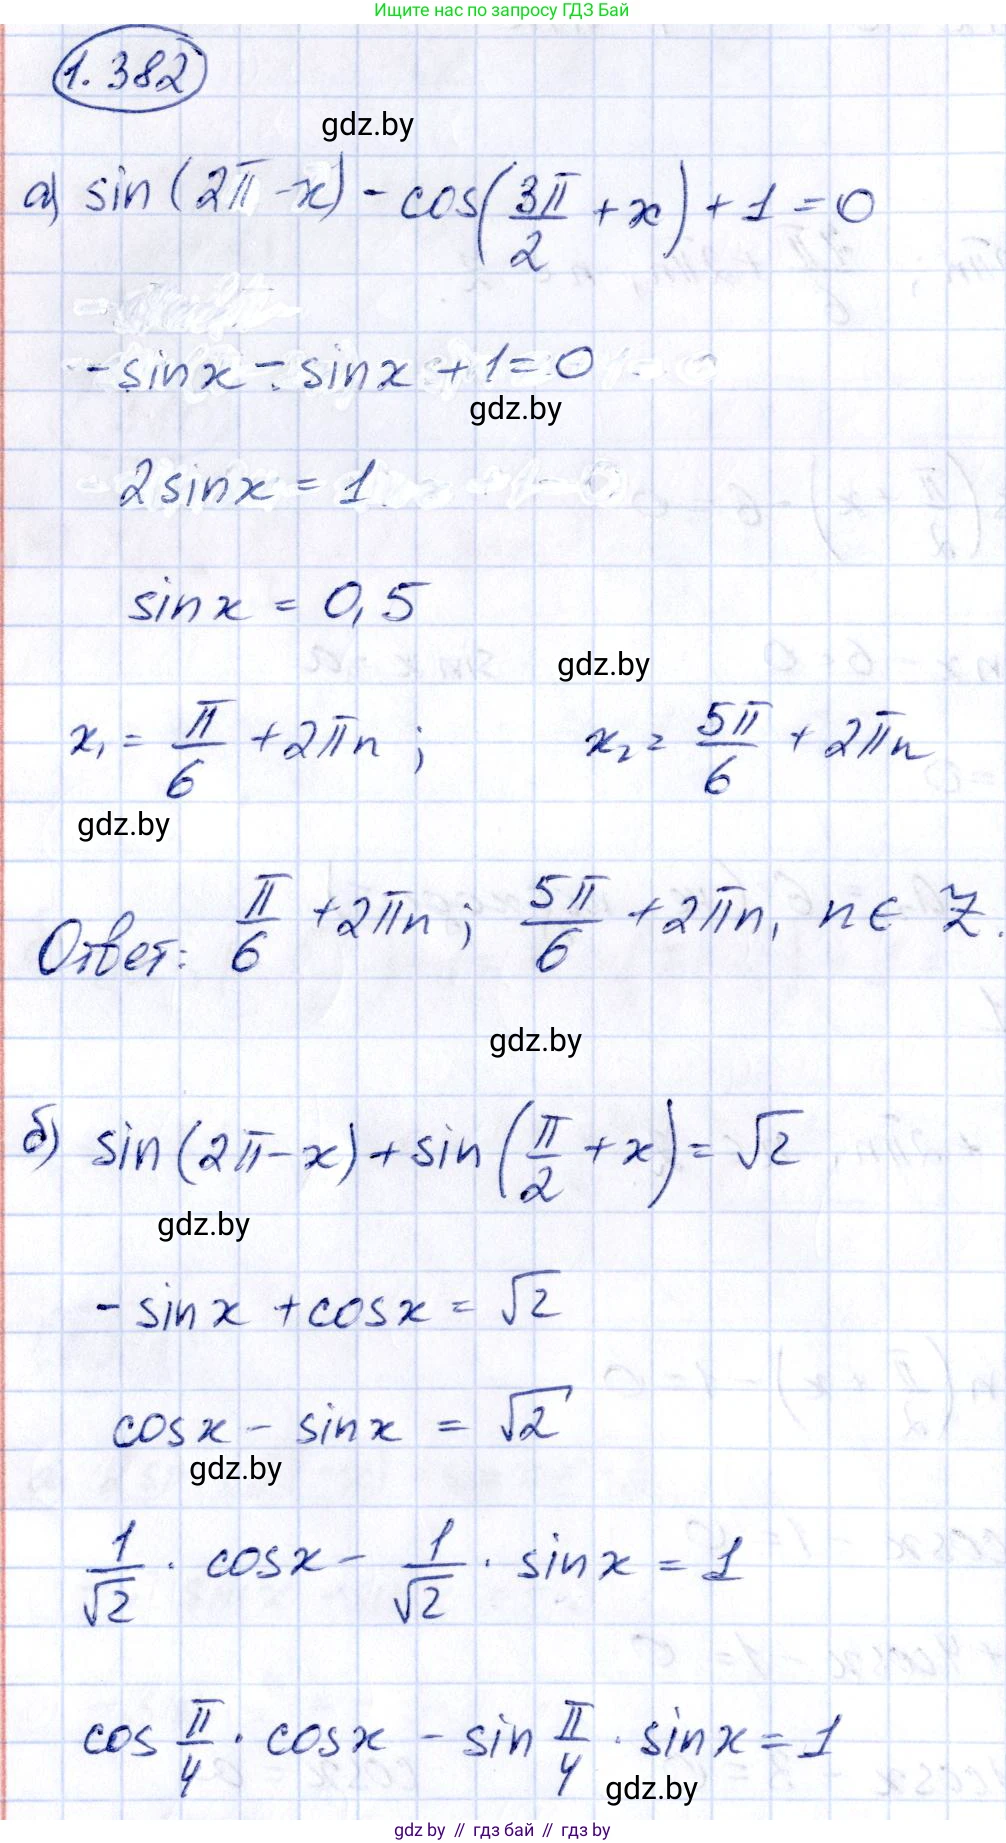 Ищите нас по запросу ГДЗ Бай
1.382
gdz.by
а) sin(2π - x) - cos(3π/2 + x) + 1 = 0
- sinx - sinx + 1 = 0
gdz.by
2sinx = 1
sinx = 0,5
gdz.by
x₁ = π/6 + 2πn ; x₂ = 5π/6 + 2πn
gdz.by
Ответ: π/6 + 2πn ; 5π/6 + 2πn, n ∈ Z.
gdz.by
б) sin(2π - x) + sin(π/2 + x) = √2
gdz.by
- sinx + cosx = √2
cosx - sinx = √2
gdz.by
1/√2 · cosx - 1/√2 · sinx = 1
cos π/4 · cosx - sin π/4 · sinx = 1
gdz.by
gdz.by // гдз бай // gdz by